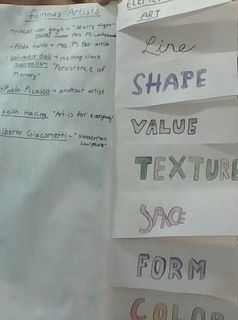 famous Artists
Vincent van gogh - "Starry night"
- Frida Kahlo
Salvador dali - melting clock
surrealism "Persistence of
Memory"
Pablo Picasso - abstract artist
Keith Haring "Art is for everybody"
Alberto Giacometti -
sculpture"
ART
Line
SHAPE
VALUE
TEXTURE
SPACE
FORM
COLOR